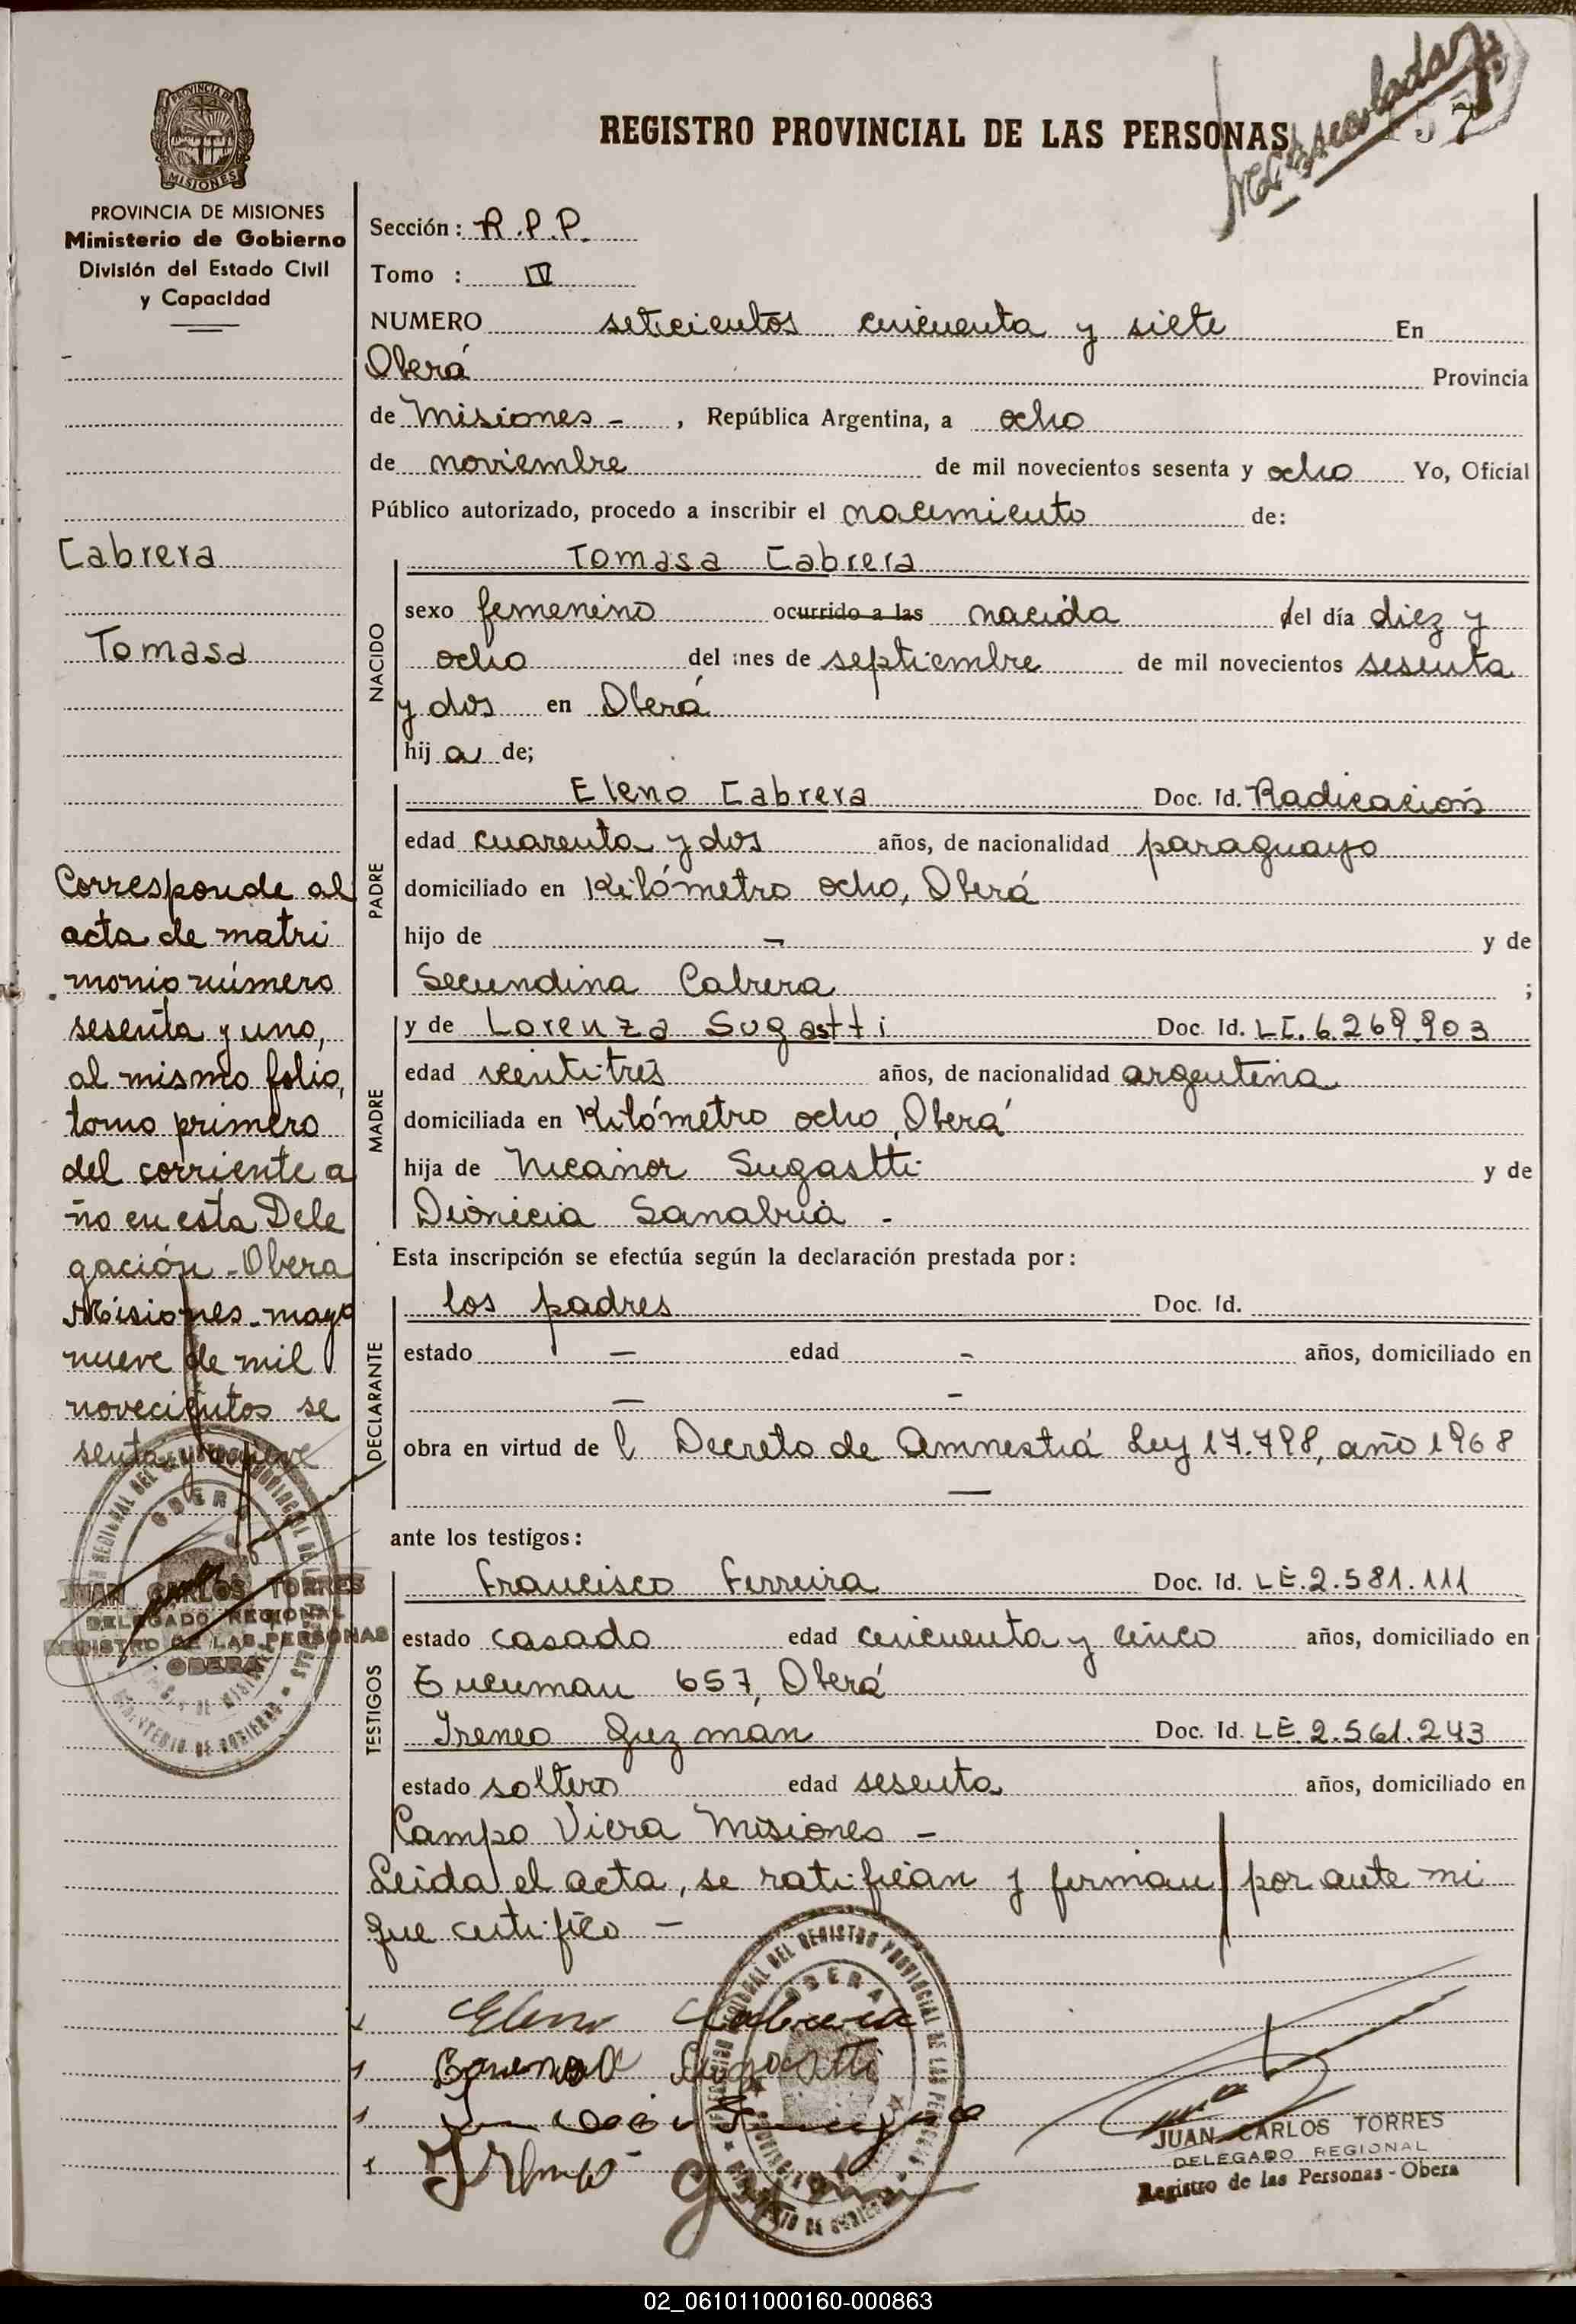 REGISTRO PROVINCIAL DE LAS PERSONAS
57
PROVINCIA DE
MISIONES
PROVINCIA DE MISIONES
Ministerio de Gobierno
División del Estado Civil
y Capacidad
Cabrera
Tomasa
Corresponde al
acta de matri
monio número
sesenta y uno,
al mismo folio,
tomo primero
del corriente a
ño en esta Dele
gación - Obera
Misiones - mayo
nueve de mil
novecientos se
senta y nueve
OBERA
JUAN CARLOS TORRES
DELEGADO REGIONAL
REGISTRO DE LAS PERSONAS
OBERA
Sección: R.P.P.
Tomo : IV
NUMERO setecientos cincuenta y siete En
Oberá Provincia
de Misiones - , República Argentina, a ocho
de noviembre de mil novecientos sesenta y ocho Yo, Oficial
Público autorizado, procedo a inscribir el nacimiento de:
NACIDO
Tomasa Cabrera
sexo femenino ocurrido a las nacida del día diez y
ocho del mes de septiembre de mil novecientos sesenta
y dos en Oberá
hij a de;
PADRE
Eleno Cabrera Doc. Id. Radicación
edad cuarenta y dos años, de nacionalidad paraguayo
domiciliado en Kilómetro ocho, Oberá
hijo de - y de
Secundina Cabrera ;
MADRE
y de Lorenza Sugastti Doc. Id. LC. 6.269.903
edad veintitres años, de nacionalidad argentina
domiciliada en Kilómetro ocho, Oberá
hija de Nicanor Sugastti y de
Dionicia Sanabria -
Esta inscripción se efectúa según la declaración prestada por:
DECLARANTE
los padres Doc. Id.
estado - edad - años, domiciliado en
- -
obra en virtud de l Decreto de Amnestiá Ley 17.798, año 1968
-
ante los testigos:
TESTIGOS
Francisco Ferreira Doc. Id. LE. 2.581.111
estado casado edad cincuenta y cinco años, domiciliado en
Tucuman 657, Oberá
Ireneo Guzmán Doc. Id. LE. 2.561.243
estado soltero edad sesenta años, domiciliado en
Campo Viera Misiones -
Leida el acta, se ratifican y firman por ante mi
que certifico -
Eleno Cabrera
Sugastti
OBERA
JUAN CARLOS TORRES
DELEGADO REGIONAL
Registro de las Personas - Obera
02_061011000160-000863